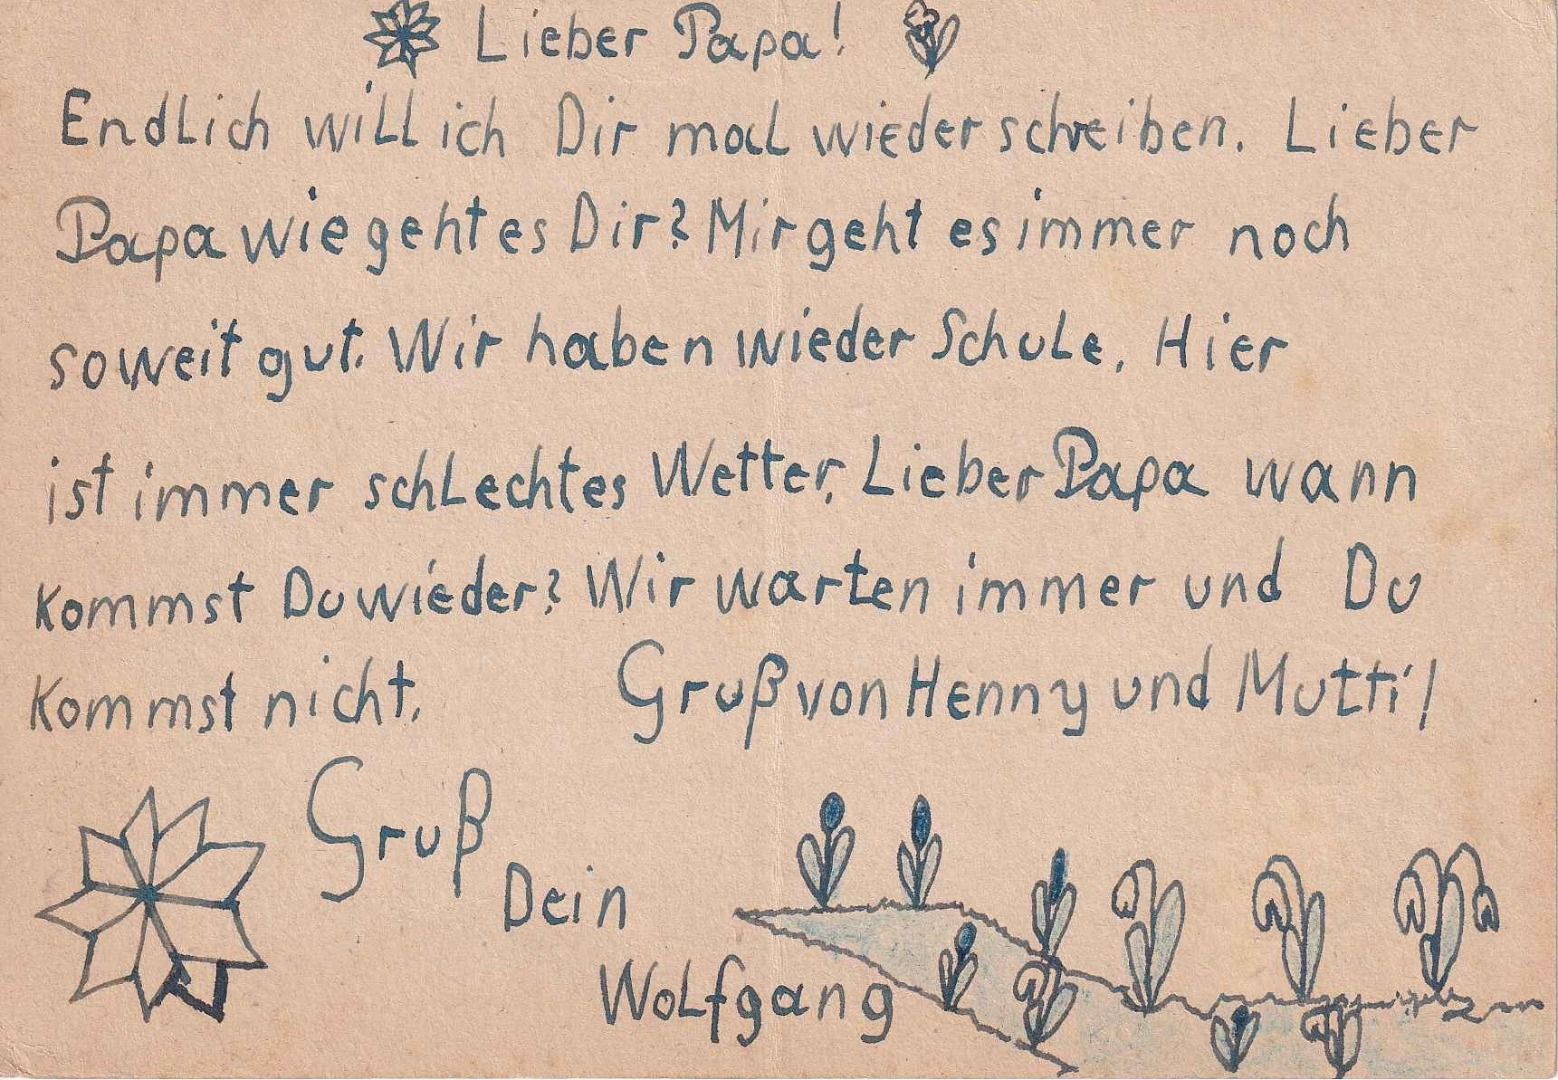 Lieber Papa!
Endlich will ich Dir mal wieder schreiben. Lieber
Papa wie geht es Dir? Mir geht es immer noch
soweit gut. Wir haben wieder Schule. Hier
ist immer schlechtes Wetter. Lieber Papa wann
kommst Du wieder? Wir warten immer und Du
kommst nicht. Gruß von Henny und Mutti!
Gruß
Dein
Wolfgang